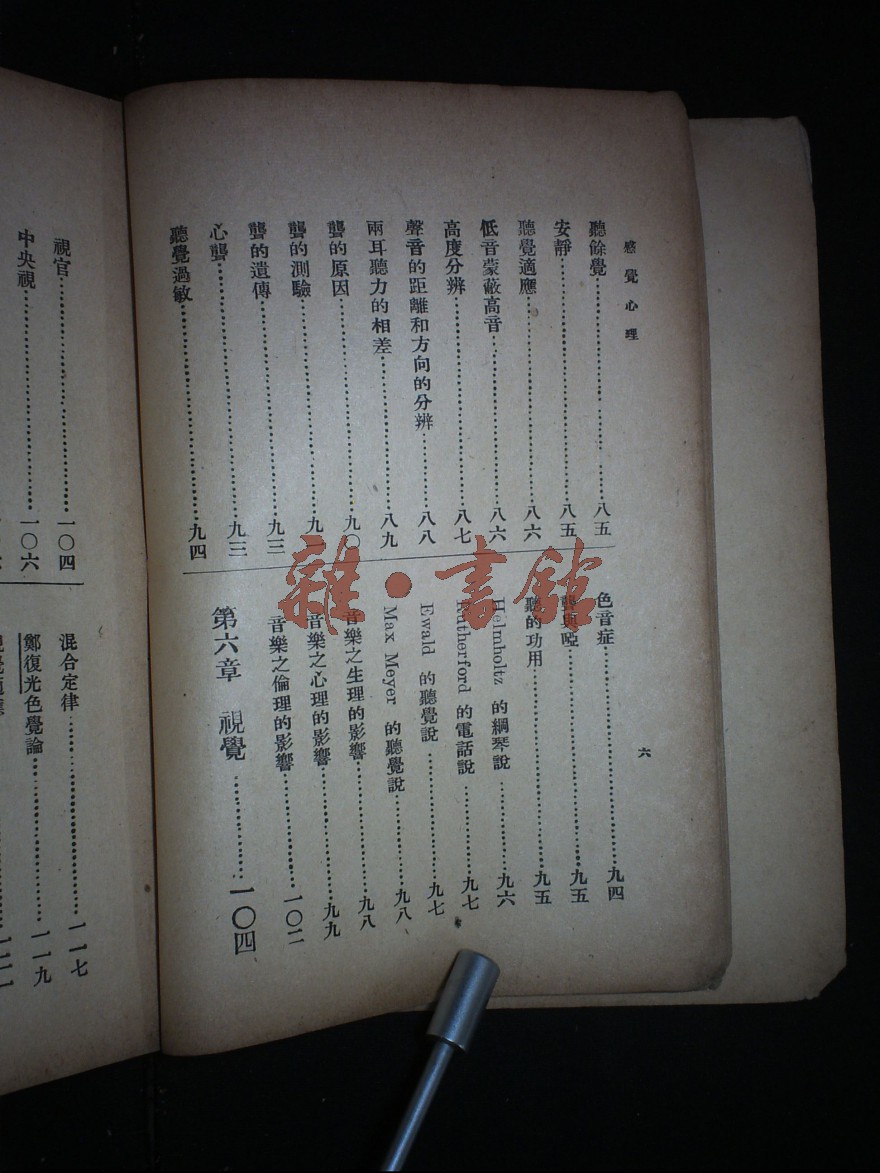 感覺心理
六
聽餘覺……八五
安靜……八五
聽覺適應……八六
低音蒙蔽高音……八六
高度分辨……八七
聲音的距離和方向的分辨……八八
兩耳聽力的相差……八九
聾的原因……九〇
聾的測驗……九一
聾的遺傳……九三
心聾……九三
聽覺過敏……九四
色音症……九四
聾與啞……九五
聽的功用……九五
Helmholtz 的鋼琴說……九六
Rutherford 的電話說……九七
Ewald 的聽覺說……九七
Max Meyer 的聽覺說……九八
音樂之生理的影響……九八
音樂之心理的影響……九九
音樂之倫理的影響……一〇二
第六章 視覺……一〇四
視官……一〇四
中央視……一〇六
混合定律……一一七
鄭復光色覺論……一一九
雜·書館